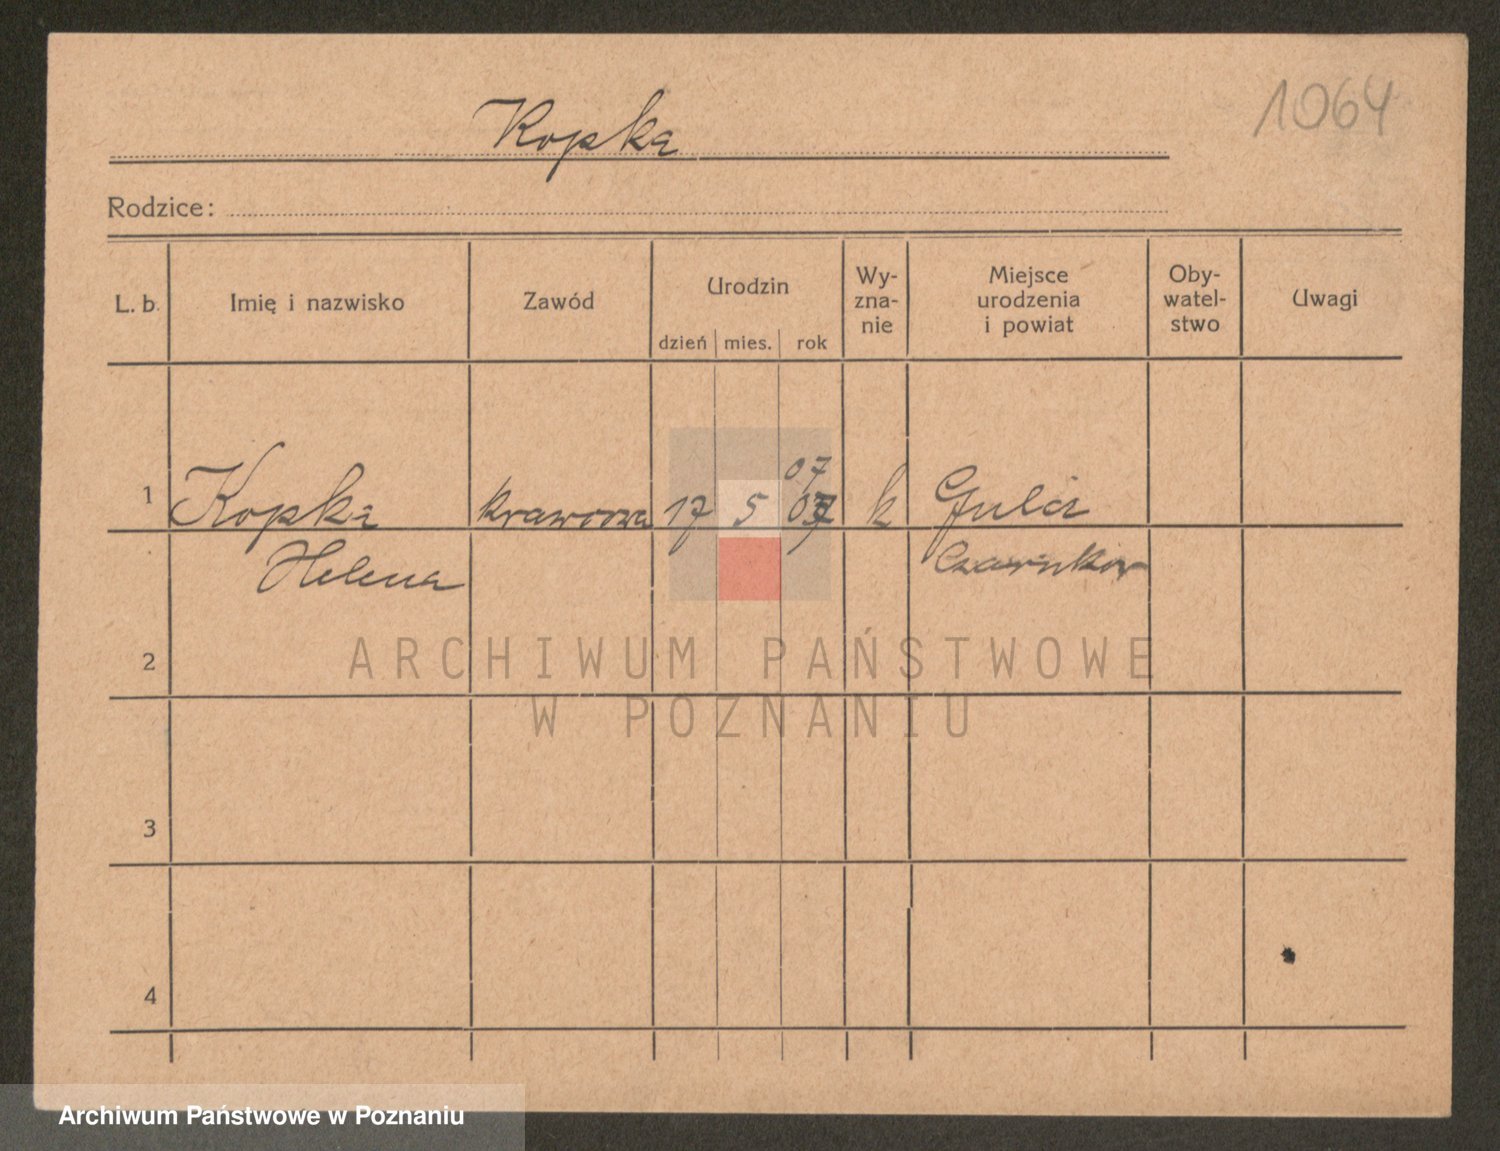 1064
Kopka
Rodzice:
L. b. Imię i nazwisko Zawód Urodzin dzień mies. rok Wy-zna-nie Miejsce urodzenia i powiat Oby-watel-stwo Uwagi
07
1 Kopka krawcowa 17 5 07 k Gulcz
Helena Czarnków
2
ARCHIWUM PAŃSTWOWE
W POZNANIU
3
4
Archiwum Państwowe w Poznaniu